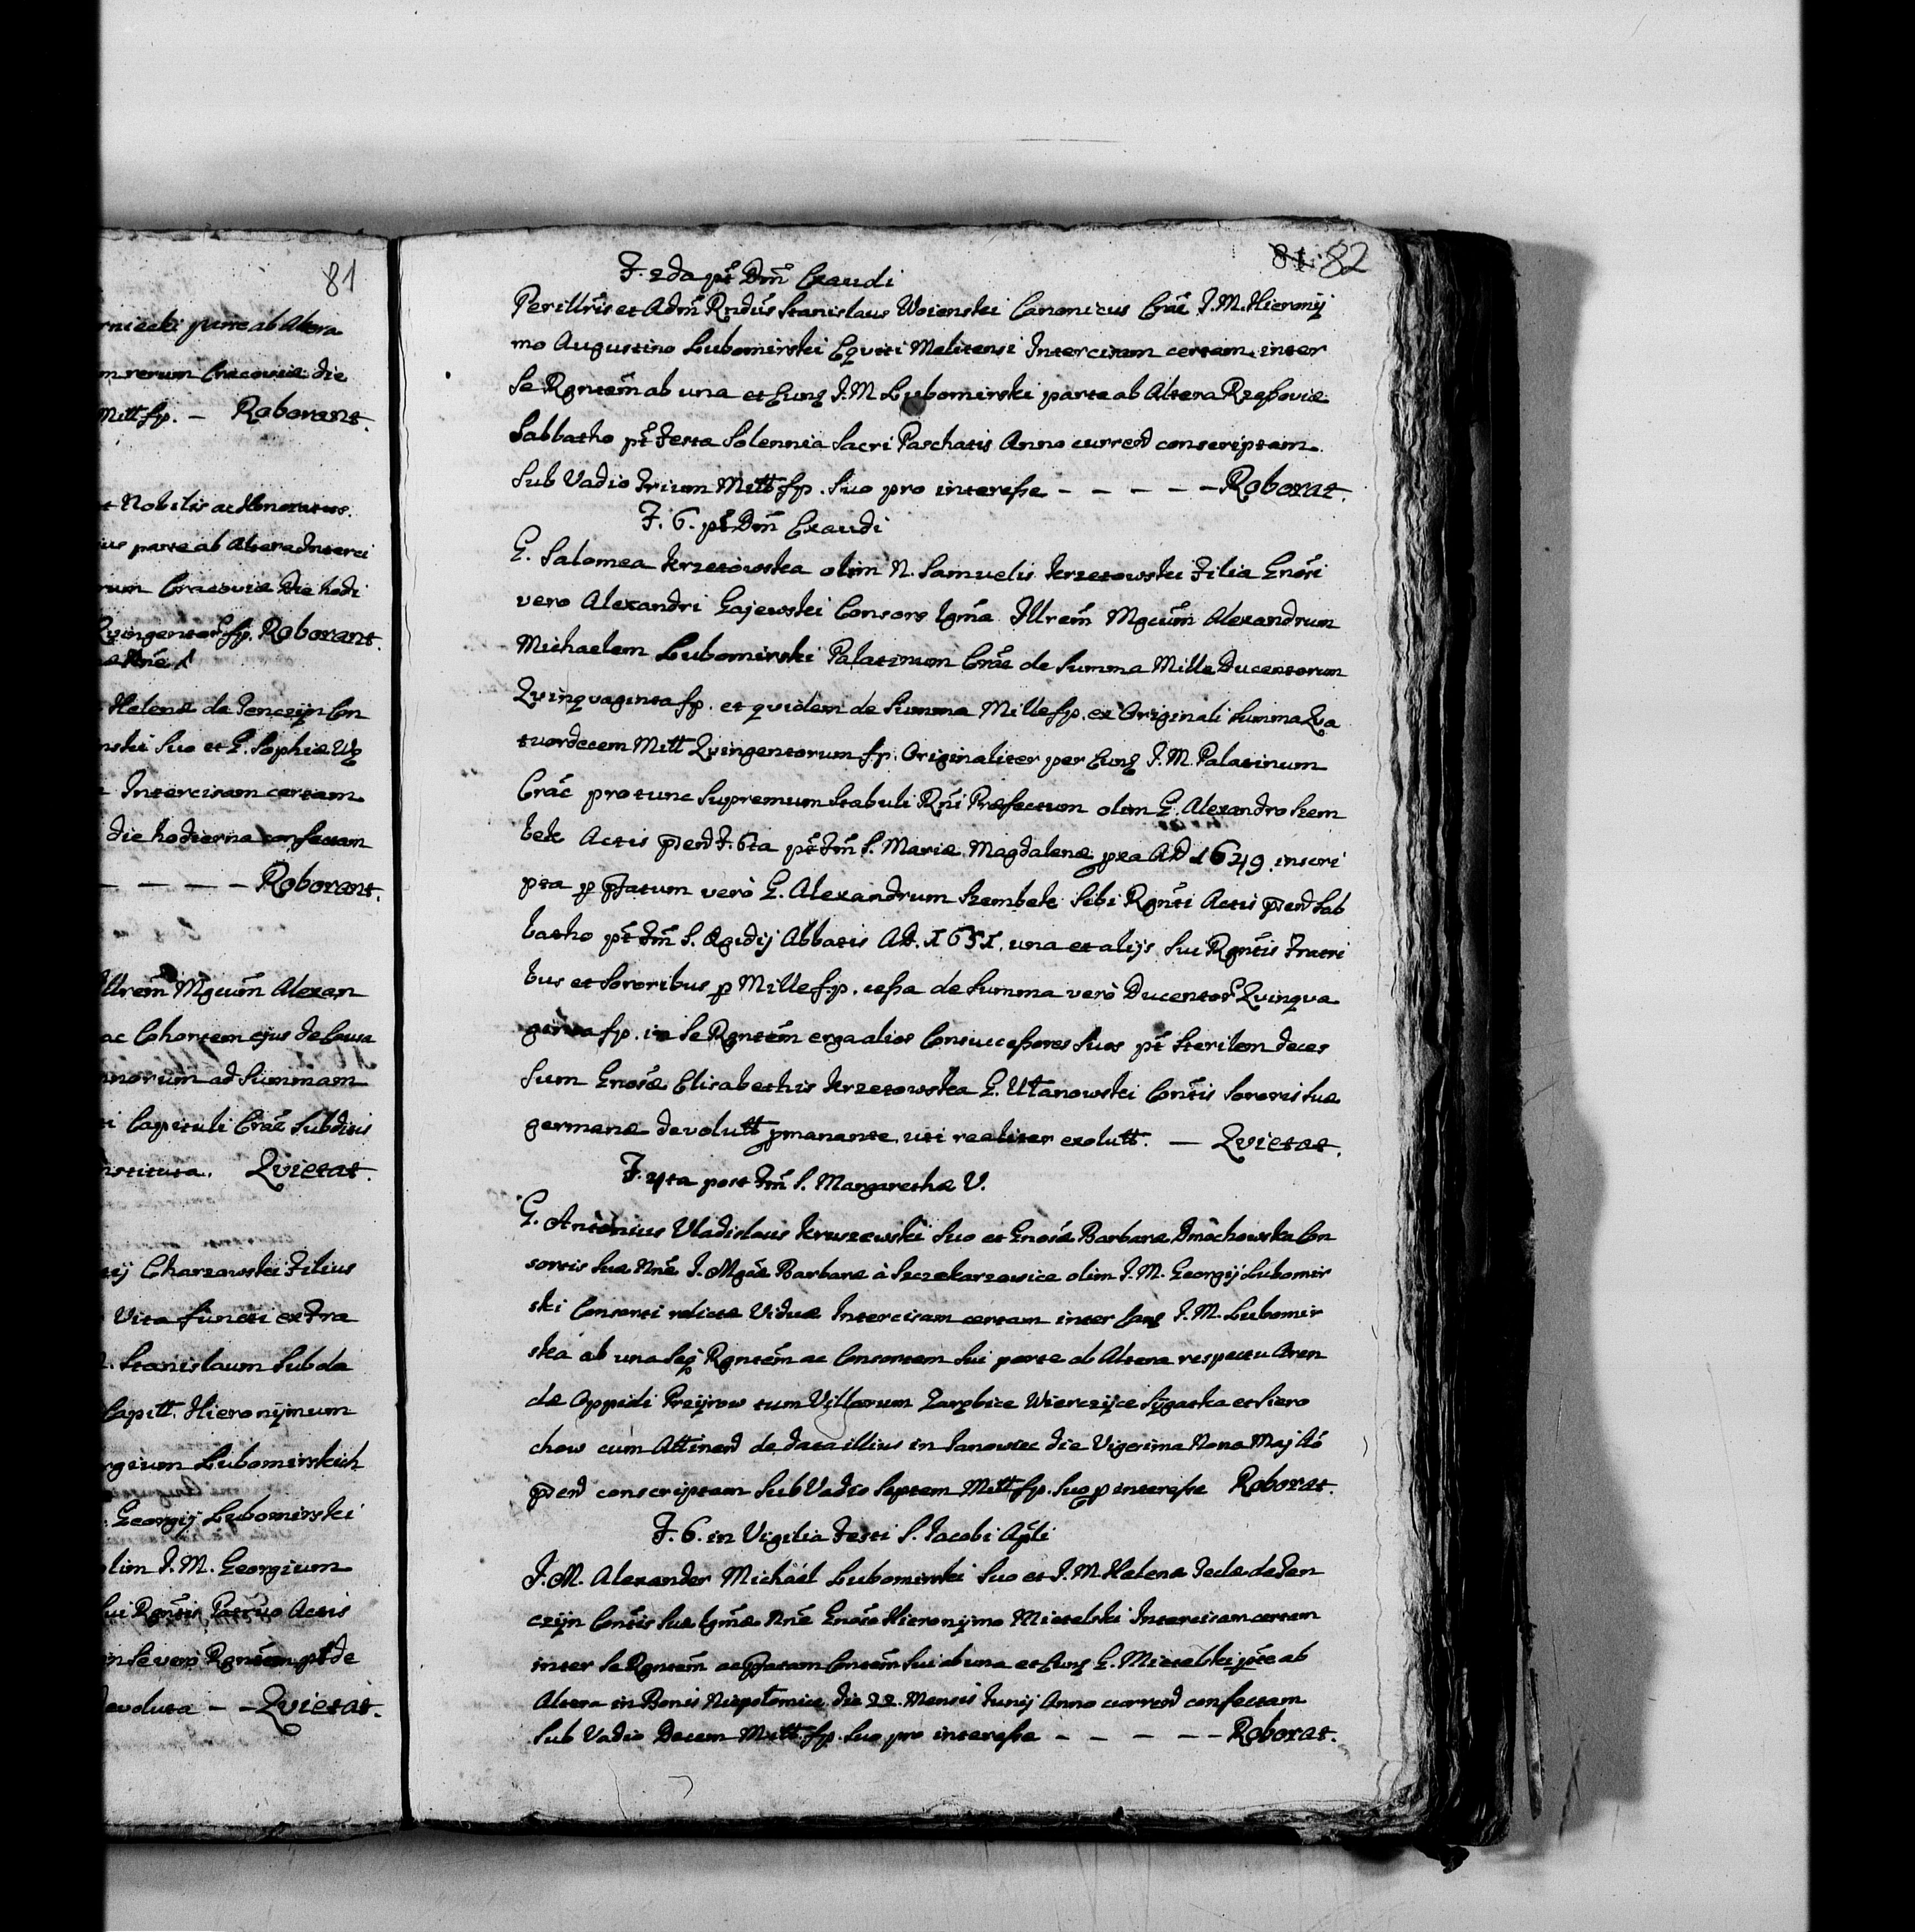 81
rnicki parte ab Altera
m rerum Cracoviæ die
Mill fp. — Roborant.
t Nobilis ac Honoratus
ius parte ab Altera Interci
rum Cracoviæ Die hodi
Qvingentor fp. Roborant.
Helenæ de Tenczÿn Con
nski Suo et G. Sophiæ
t Intercisam certam
die hodierna confectam
— — — — Roborant.
llrem̃ Mgcum̃ Alexan
ac Cohortem ejus de Causa
nnorum ad Summam
i Capituli Crãc Subditis
nstituta. Qvietat.
ij Charzowski Filius
Vita functi ex Fra
Stanislaum Subda
Capitt. Hieronÿmum
rgium Lubomirskich
Georgij Lubomirski
olim J. M. Georgium
Sui Rgñtis Patruo Actis
in Se vero Rgntem pt de
evoluta — — Qvietat.
81. 82
F. 2da pt̃ Dm̃ Exaudi
Perillr̃is et Adm̃ Rndus̃ Stanislaus Woienski Canonicus Crãc J. M. Hieronÿ
mo Augustino Lubomirski Eqviti Melitensi Intercisam certam inter
Se Rgntem̃ ab una et Eunḍ J. M. Lubomirski parte ab Altera Rzeßoviæ
Sabbatho pt̃ Festa Solennia Sacri Paschatis Anno currend conscriptam
Sub Vadio Trium Mitt fp. Suo pro intereße — — — — — Roborat.
F. 6. pt̃ Dm̃ Exaudi
G. Salomea Krzetowska olim N. Samuelis Krzetowski Filia Gnõsi
vero Alexandri Gajewski Consors Lgm̃a Illrem̃ Mgcum̃ Alexandrum
Michaelem Lubomirski Palatinum Crãc de Summa Mille Ducentorum
Qvinqvaginta fp. et qvidem de Summa Mille fp. ex Originali Summa Qva
tuordecem Mitt Qvingentorum fp. Originaliter per Eunḍ J. M. Palatinum
Crãc pro tunc Supremum Stabuli Rñi Præfectum olim G. Alexandro Szem
bek Actis p̃end F. 6ta pt̃ Fm̃ S. Mariæ Magdalenæ pxa AD 1649. inscri
pta p p̃fatum verò G. Alexandrum Szembek Sibi Rgnti Actis p̃end Sab
batho pt̃ Fm̃ S. Ægidij Abbatis AD. 1651. una et alijs Sui Rgñtis Fratri
bus et Sororibus p Mille fp. ceßa de Summa verò Ducentor Qvinqva
ginta fp. in Se Rgntem̃ erga alios Consucceßores Suos pt̃ Sterilem deces
Sum Gnosæ Elisabethis Krzetowska G. Ułanowski Contis̃ Sororis Suæ
germanæ devolutt pmanante, uti realiter exolutt. — Qvietat.
F. 4ta post Fm̃ S. Margarethæ V.
G. Antonius Vladislaus Kruszewski Suo et Gnosæ Barbaræ Dmochowska Con
sortis Suæ Nñe J. Mgñæ Barbaræ à Szczekarzowice olim J. M. Georgij Lubomir
ski Consorti relictæ Viduæ Intercisam certam inter Eanḍ J. M. Lubomir
ska ab una Seq Rgntem̃ ac Consortem Sui parte ab Altera respectu Aren
dæ Oppidi Preÿrow tum Villarum Zarębice Wierczÿce Sÿgatka et Siero
chow cum Attinend de data illius in Janowiec die Vigesima Nona Maj Aõ
p̃end conscriptam Sub Vadio Septem Mitt fp. Suo p intereße Roborat.
F. 6. in Vigilia Festi S. Jacobi Apli
J. M. Alexander Michaël Lubomirski Suo et J. M. Helenæ Teclæ de Ten
czÿn Contis̃ Suæ Lgm̃æ Nñe Gnoso Hieronÿmo Mietelski Intercisam certam
inter Se Rgntem̃ ac p̃fatam Contem̃ Sui ab una et Eunḍ G. Mietelski pte ab
Altera in Bonis Niepołomice die 22. Mensis Junij Anno currend confectam
Sub Vadio Decem Mitt. fp. Suo pro intereße — — — — — Roborat.